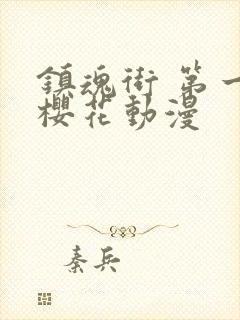 鎮魂街 第一
櫻花動漫
秦兵